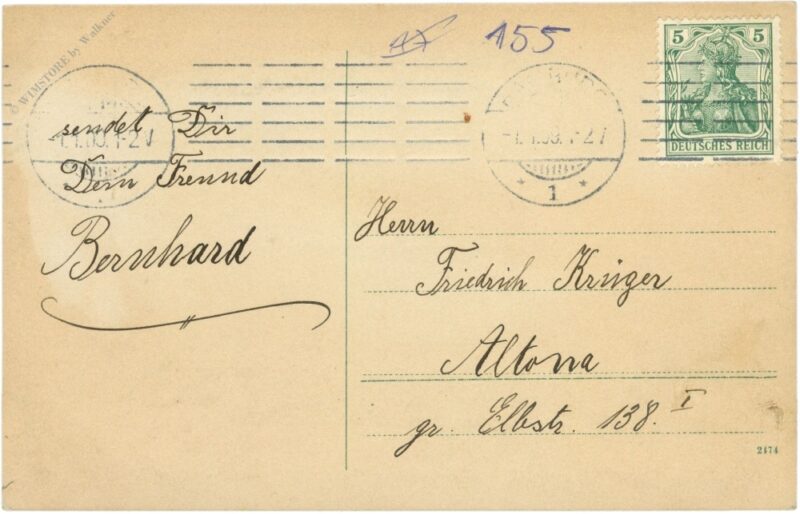 © WIMSTORE by Walkner
155
5 5
DEUTSCHES REICH
1
sendet Dir
Dein Freund
Bernhard
Herrn
Friedrich Krüger
Altona
gr. Elbstr. 138. I
2474